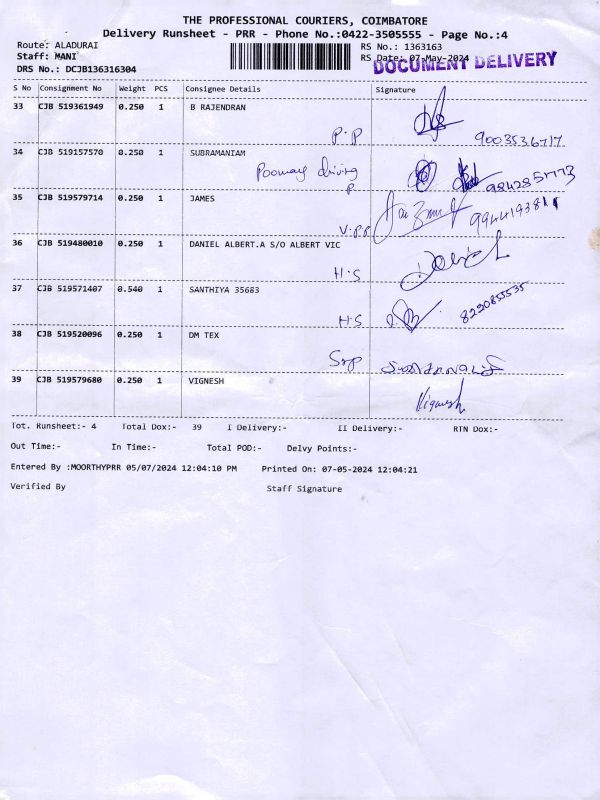 THE PROFESSIONAL COURIERS, COIMBATORE
Delivery Runsheet - PRR - Phone No.:0422-3505555 - Page No.:4
Route: ALADURAI RS No.: 1363163
Staff: MANI RS Date: 07-May-2024
DOCUMENT DELIVERY
DRS No.: DCJB136316304
S No Consignment No Weight PCS Consignee Details Signature
33 CJB 519361949 0.250 1 B RAJENDRAN
P.P 9003536717
34 CJB 519157570 0.250 1 SUBRAMANIAM
P 9842851773
35 CJB 519579714 0.250 1 JAMES
9944193811
36 CJB 519480010 0.250 1 DANIEL ALBERT.A S/O ALBERT VIC
H.S
37 CJB 519571407 0.540 1 SANTHIYA 35683
H.S 8220855535
38 CJB 519520096 0.250 1 DM TEX
39 CJB 519579680 0.250 1 VIGNESH
Vignesh
Tot. Runsheet:- 4 Total Dox:- 39 I Delivery:- II Delivery:- RTN Dox:-
Out Time:- In Time:- Total POD:- Delvy Points:-
Entered By :MOORTHYPRR 05/07/2024 12:04:10 PM Printed On: 07-05-2024 12:04:21
Verified By Staff Signature